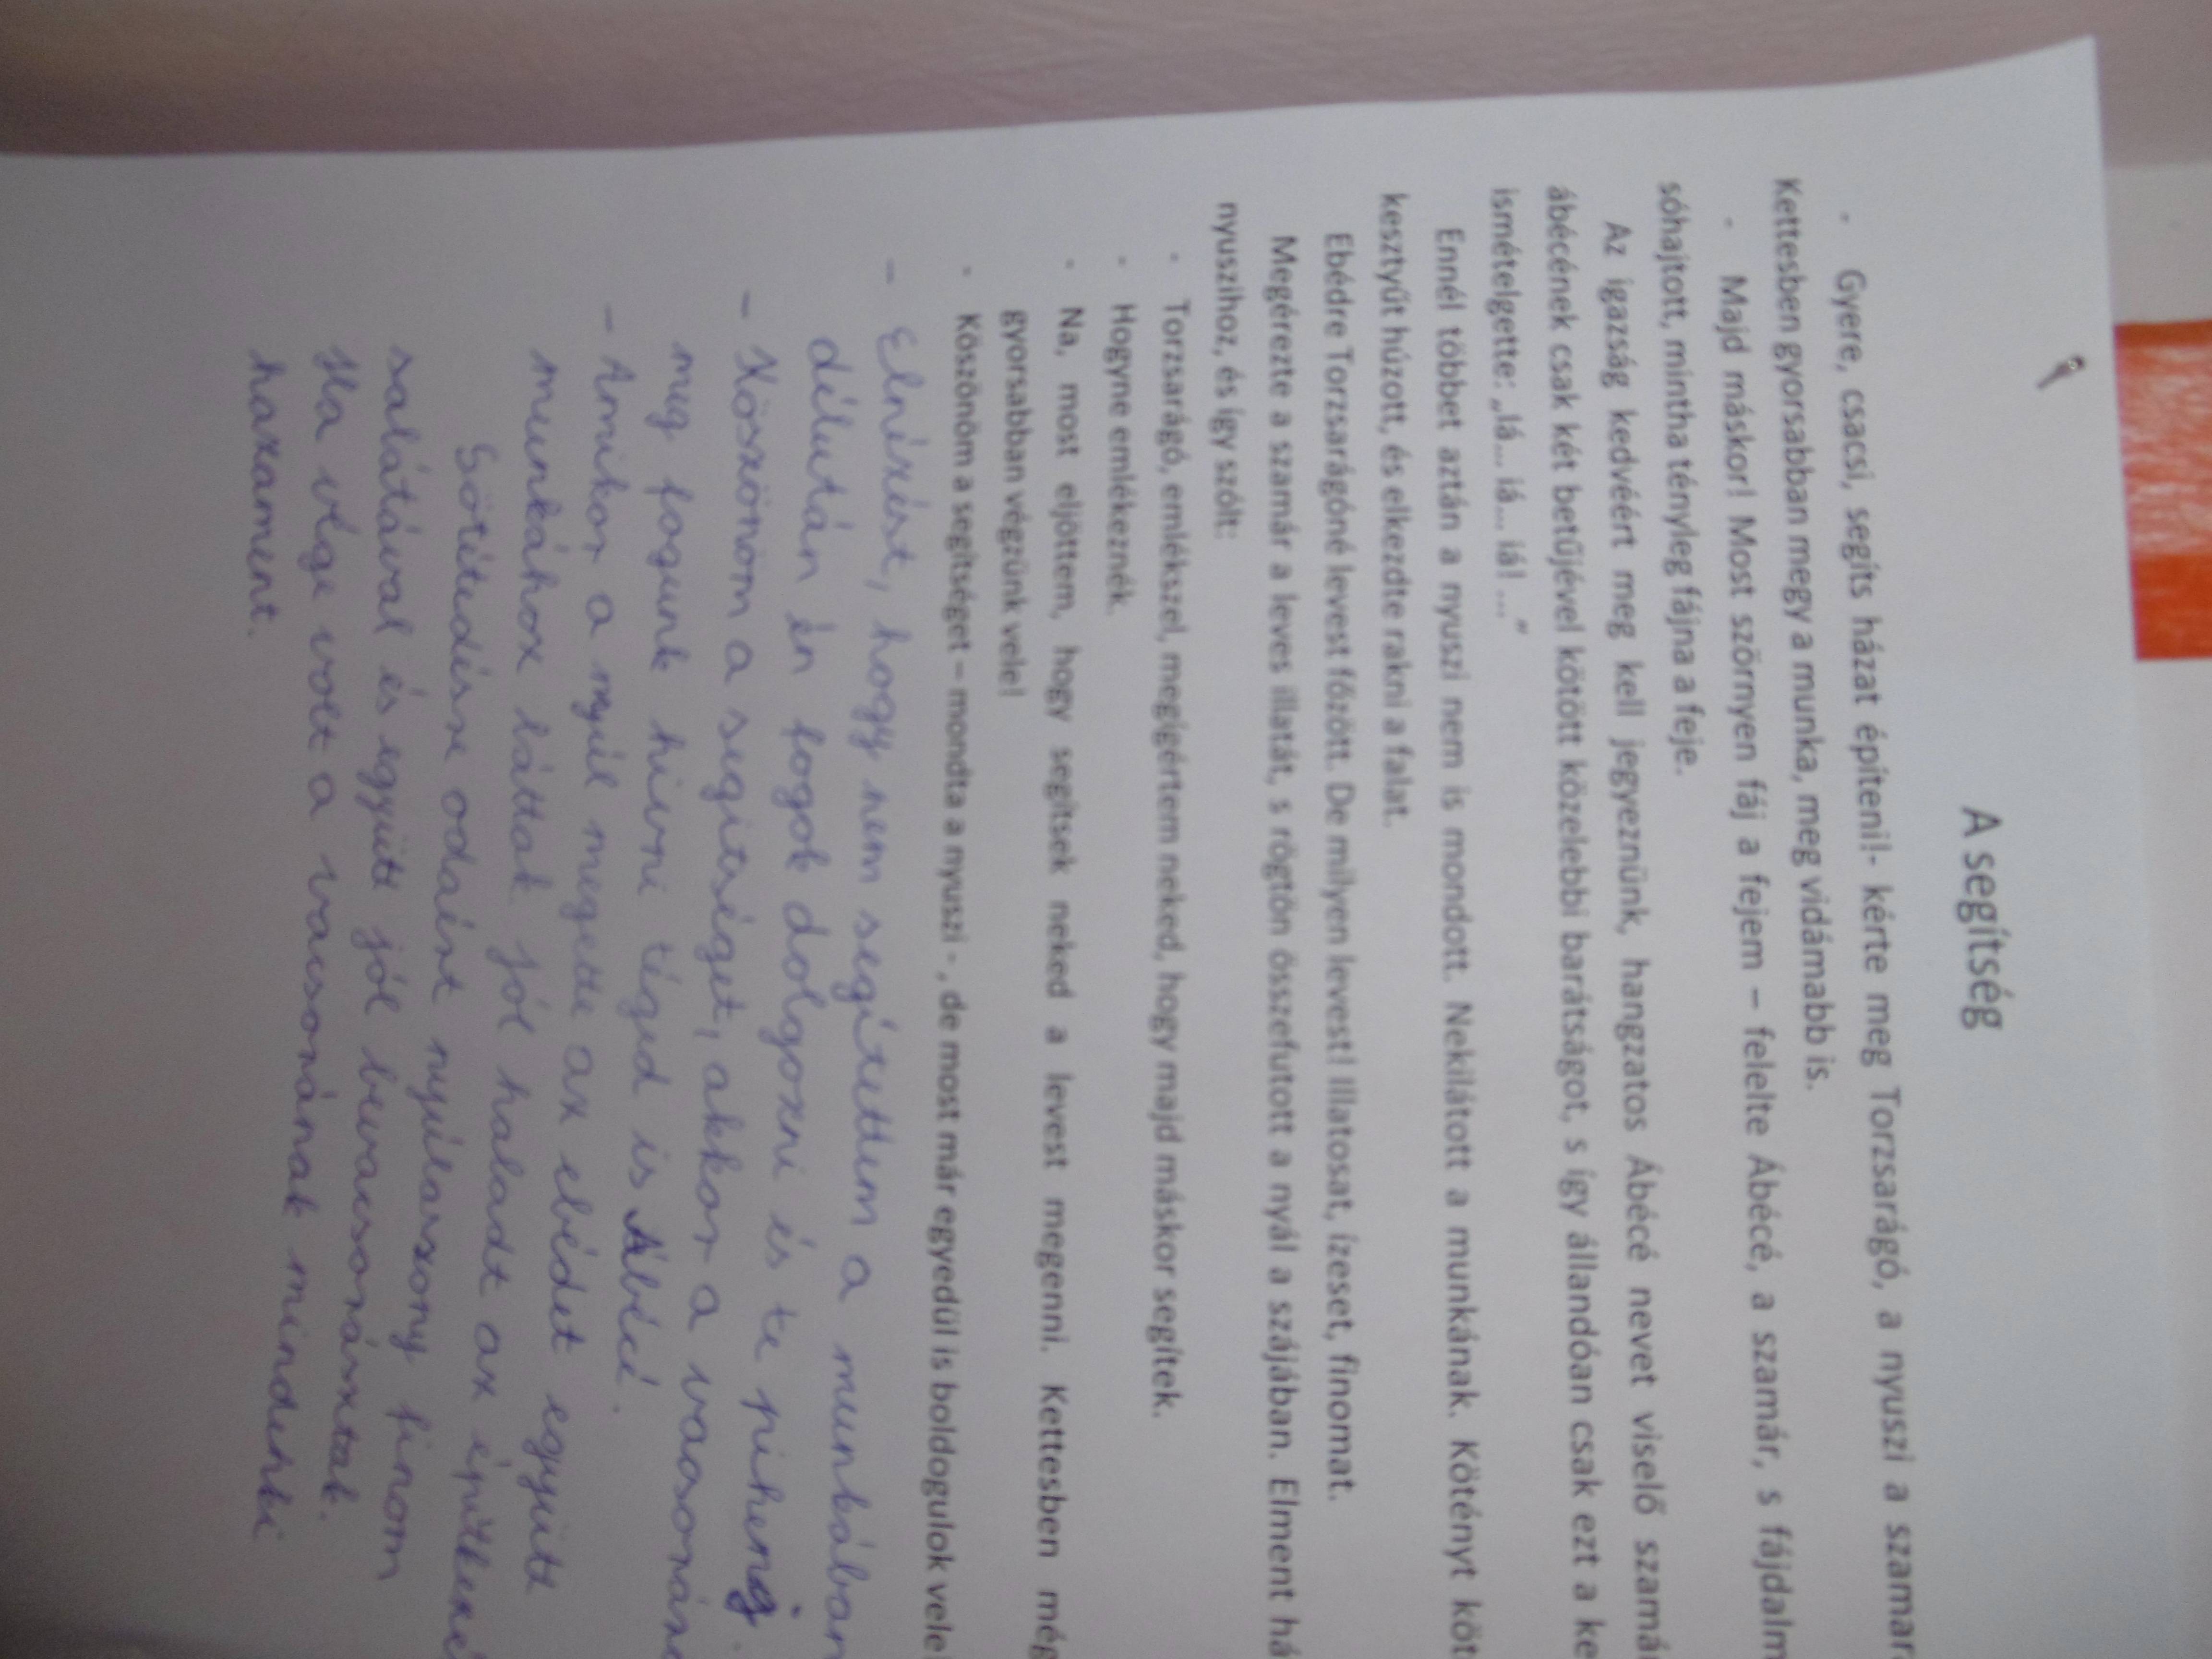 A segítség
- Gyere, csacsi, segíts házat építeni!- kérte meg Torzsarágó, a nyuszi a szamar
Kettesben gyorsabban megy a munka, meg vidámabb is.
- Majd máskor! Most szörnyen fáj a fejem – felelte Ábécé, a szamár, s fájdalm
sóhajtott, mintha tényleg fájna a feje.
Az igazság kedvéért meg kell jegyeznünk, hangzatos Ábécé nevet viselő szamá
ábécének csak két betűjével kötött közelebbi barátságot, s így állandóan csak ezt a ke
ismételgette: „Iá... iá... iá! ...”
Ennél többet aztán a nyuszi nem is mondott. Nekilátott a munkának. Kötényt köt
kesztyűt húzott, és elkezdte rakni a falat.
Ebédre Torzsarágóné levest főzött. De milyen levest! Illatosat, ízeset, finomat.
Megérezte a szamár a leves illatát, s rögtön összefutott a nyál a szájában. Elment há
nyuszihoz, és így szólt:
- Torzsarágó, emlékszel, megígértem neked, hogy majd máskor segítek.
- Hogyne emlékeznék.
- Na, most eljöttem, hogy segítsek neked a levest megenni. Kettesben még
gyorsabban végzünk vele!
- Köszönöm a segítséget – mondta a nyuszi - , de most már egyedül is boldogulok vele
- Elnézést, hogy nem segítettem a munkában
délután én fogok dolgozni és te pihenj.
- Köszönöm a segitséget, akkor a vacsorára
meg fogunk hivni téged is Ábécé.
- Amikor a nyúl megette az ebédet együtt
munkához láttak jól haladt az építkezé
Sötétedésre odaért nyúlasszony finom
salátával és együtt jól bevacsoráztak.
Ha vége volt a vacsorának mindenki
hazament.